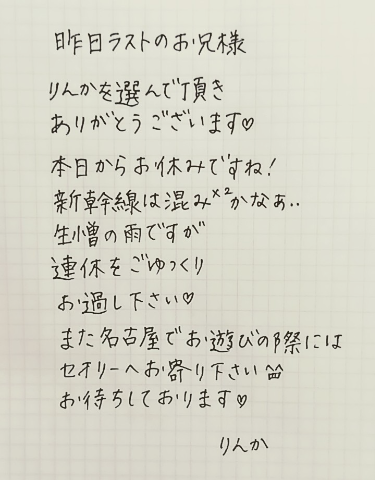 昨日ラストのお兄様
りんかを選んで頂き
ありがとうございます♡
本日からお休みですね!
新幹線は混み×2かなぁ..
生憎の雨ですが
連休をごゆっくり
お過し下さい♡
また名古屋でお遊びの際には
セオリーへお寄り下さい
お待ちしております♡
りんか